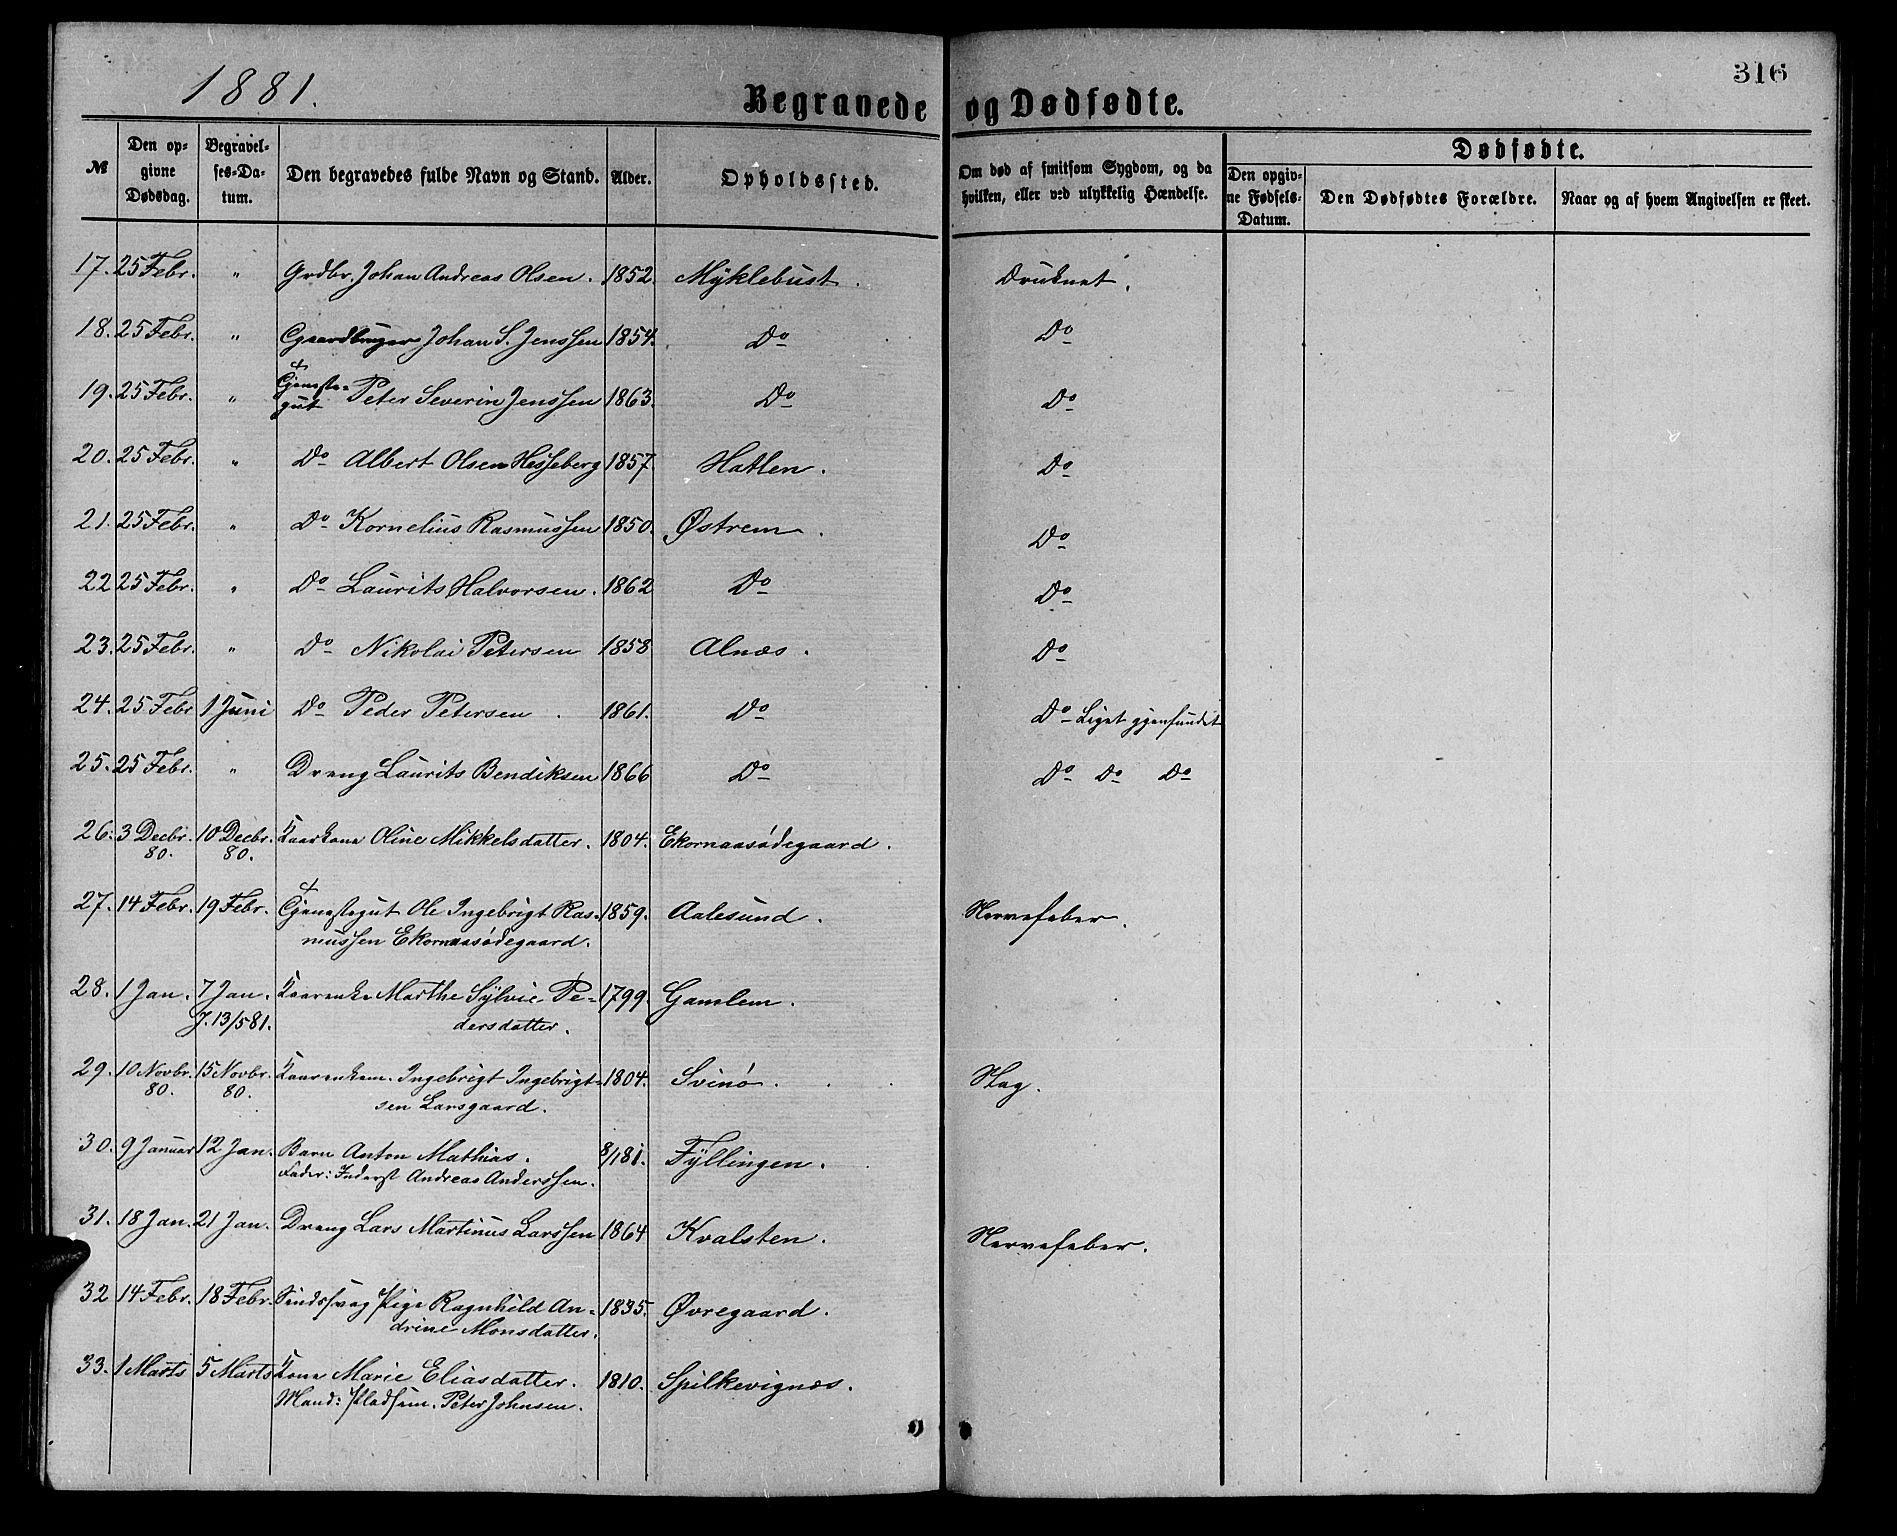 1881.
316
Begravede og Dødfødte.
№ Den opgivne Dødsdag. Begravelses-Datum. Den begravedes fulde Navn og Stand. Alder. Opholdssted. Om død af smitsom Sygdom, og da hvilken, eller ved ulykkelig Hændelse. Dødfødte. Den opgivne Fødsels-Datum. Den Dødfødtes Forældre. Naar og af hvem Angivelsen er skeet.
17. 25 Febr. " Grdbr. Johan Andreas Olsen. 1852. Myklebust. Druknet.
18. 25 Febr. " Gaardbruger Johan S. Jenssen 1854. Do Do
19. 25 Febr. " Tjeneste-
gut Peter Severin Jenssen 1863. Do Do
20. 25 Febr. " Do Albert Olsen Hesseberg 1857. Hatlen. Do
21. 25 Febr. " Do Kornelius Rasmussen 1850. Østrem. Do
22 25 Febr. " Do Laurits Halvorsen. 1862 Do Do
23. 25 Febr. " Do Nikolai Petersen 1858 Alnæs. Do
24. 25 Febr 1 Juni Do Peder Petersen. 1861. Do Do Liget gjenfundet
25. 25 Febr. " Dreng Laurits Bendiksen 1866 Do Do Do Do
26. 3 Decbr. 10 Decbr. Kaarkone Oline Mikkelsdatter. 1804. Ekornaasødegaard.
80. 80.
27. 14 Febr. 19 Febr. Tjenestegut Ole Ingebrigt Ras- 1859. Aalesund. Nervefeber.
mussen Ekornaasødegaard.
28. 1 Jan. 7 Jan. Kaarenke Marthe Sylvie Pe- 1799. Gamlem.
J. 13/5 81. dersdatter.
29. 10 Novbr. 15 Novbr. Kaarenkem. Ingebrigt Ingebrigt- 1804. Svinø. Slag.
80. 80. sen Larsgaard.
30. 9 Januar 12 Jan. Barn Anton Mathias. 8/1 81. Fyllingen.
Fader: Inderst Andreas Anderssen.
31. 18 Jan. 21 Jan. Dreng Lars Martinus Larssen 1864 Kvalsten. Nervefeber.
32 14 Febr. 18 Febr. Sindssvag Pige Ragnhild An- 1835. Øvregaard.
drine Monsdatter.
33. 1 Marts 5 Marts Kone Marie Eliasdatter. 1810. Spilkevignæs.
Mand: Pladsm. Peter Johnsen.